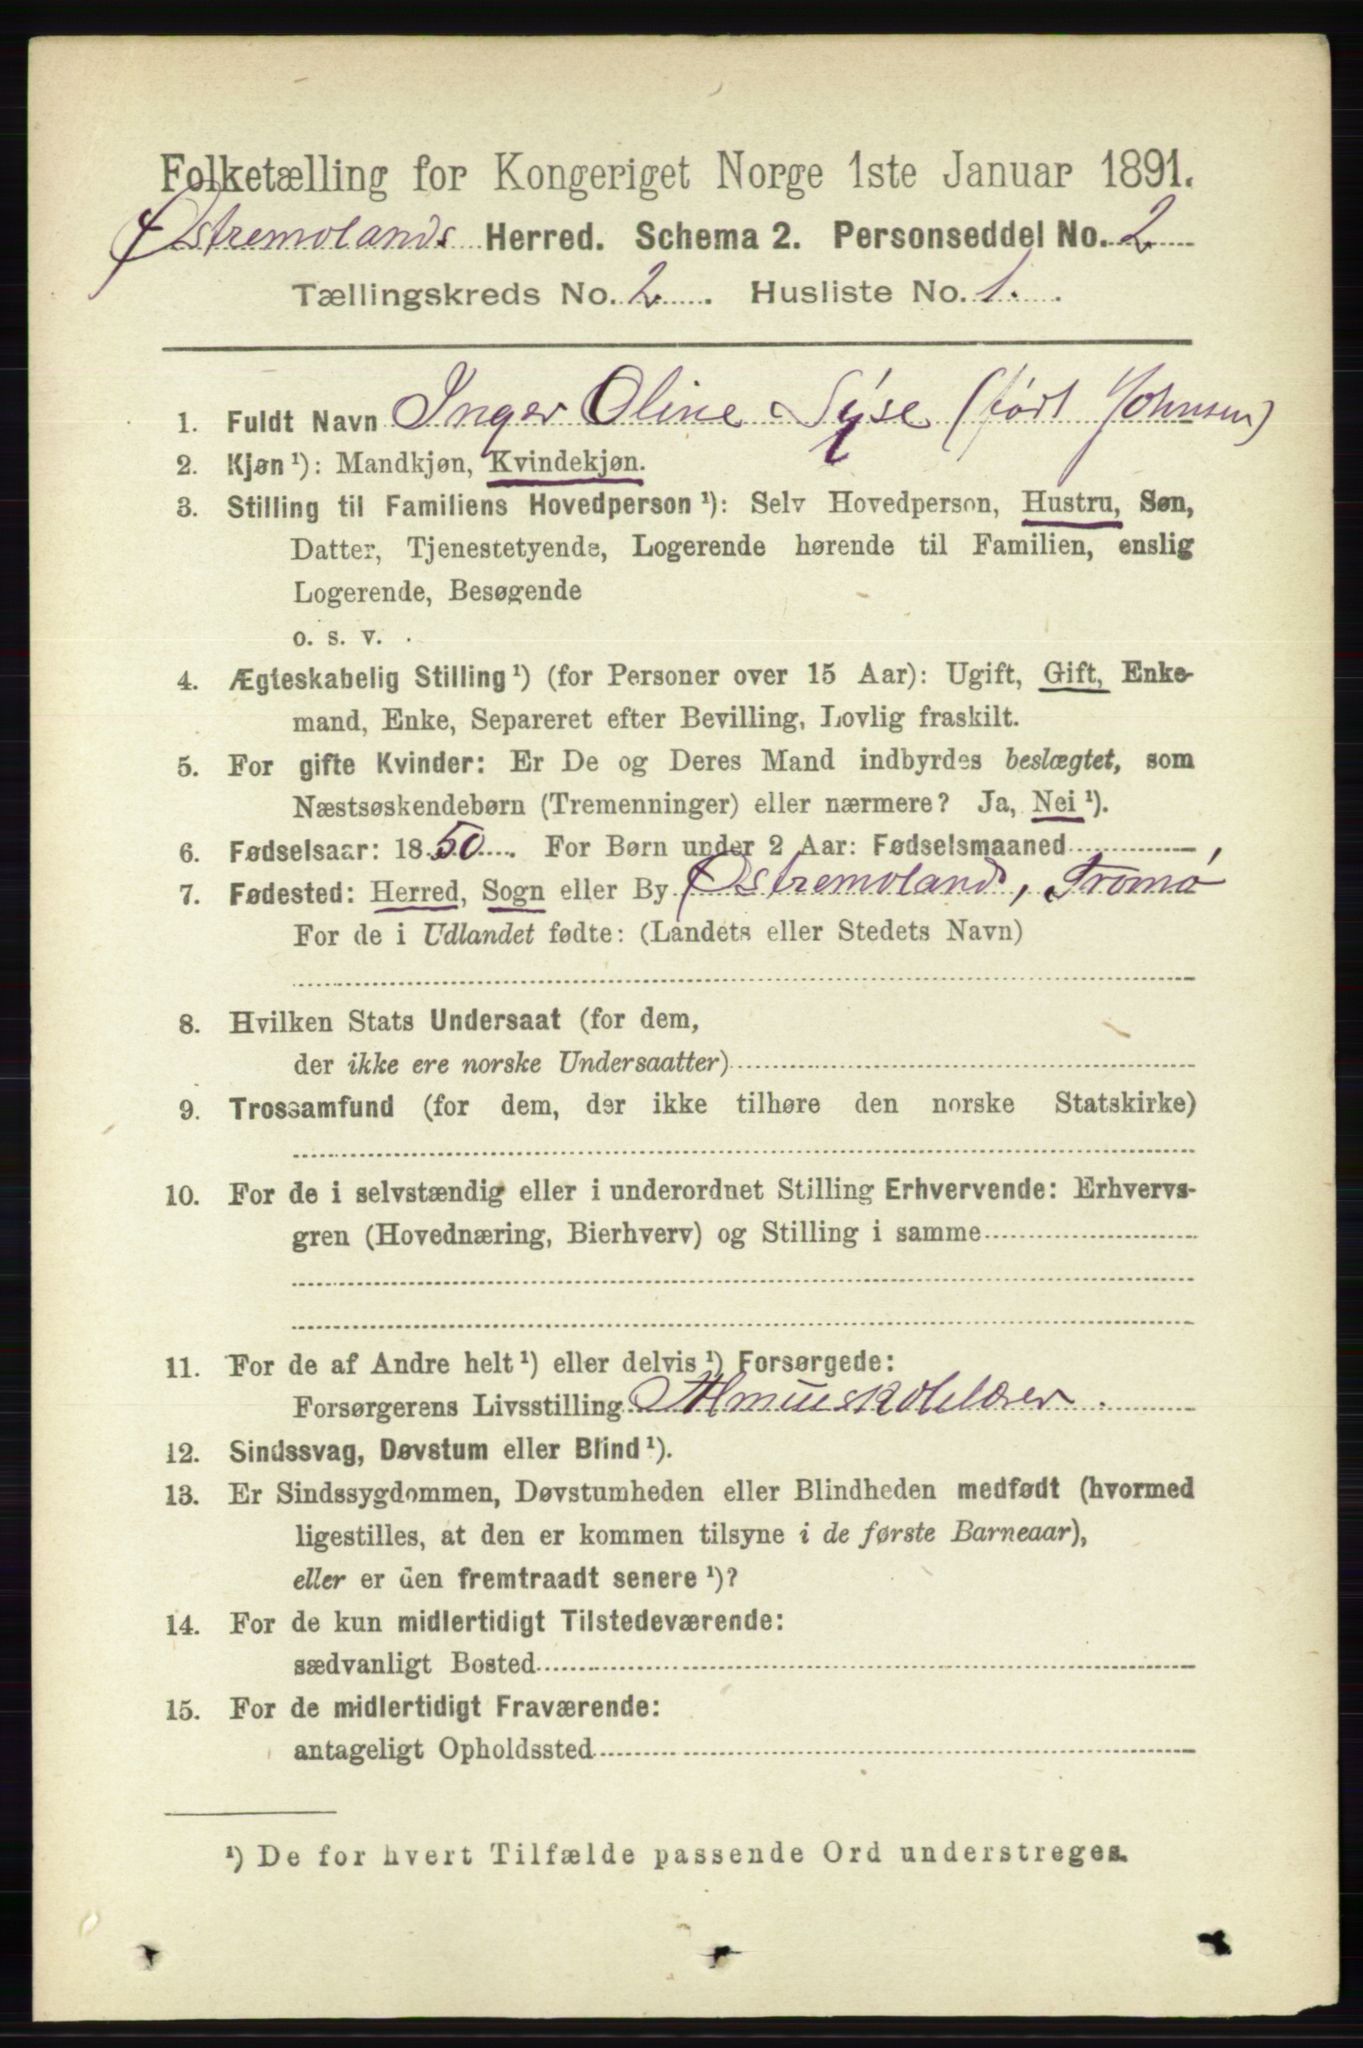 Folketælling for Kongeriget Norge 1ste Januar 1891.
Østremolands Herred. Schema 2. Personseddel No. 2
Tællingskreds No. 2. Husliste No. 1.
1. Fuldt Navn Inger Oline Syse (født Johnsen)
2. Kjøn ¹): Mandkjøn, Kvindekjøn.
3. Stilling til Familiens Hovedperson ¹): Selv Hovedperson, Hustru, Søn,
Datter, Tjenestetyende, Logerende hørende til Familien, enslig
Logerende, Besøgende
o. s. v.
4. Ægteskabelig Stilling ¹) (for Personer over 15 Aar): Ugift, Gift, Enke-
mand, Enke, Separeret efter Bevilling, Lovlig fraskilt.
5. For gifte Kvinder: Er De og Deres Mand indbyrdes beslægtet, som
Næstsøskendebørn (Tremenninger) eller nærmere? Ja, Nei ¹).
6. Fødselsaar: 1850. For Børn under 2 Aar: Fødselsmaaned
7. Fødested: Herred, Sogn eller By Østremoland, Tromø
For de i Udlandet fødte: (Landets eller Stedets Navn)
8. Hvilken Stats Undersaat (for dem,
der ikke ere norske Undersaatter)
9. Trossamfund (for dem, der ikke tilhøre den norske Statskirke)
10. For de i selvstændig eller i underordnet Stilling Erhvervende: Erhvervs-
gren (Hovednæring, Bierhverv) og Stilling i samme
11. For de af Andre helt ¹) eller delvis ¹) Forsørgede:
Forsørgerens Livsstilling
12. Sindssvag, Døvstum eller Blind ¹).
13. Er Sindssygdommen, Døvstumheden eller Blindheden medfødt (hvormed
ligestilles, at den er kommen tilsyne i de første Barneaar),
eller er den fremtraadt senere ¹)?
14. For de kun midlertidigt Tilstedeværende:
sædvanligt Bosted
15. For de midlertidigt Fraværende:
antageligt Opholdssted
¹) De for hvert Tilfælde passende Ord understreges.